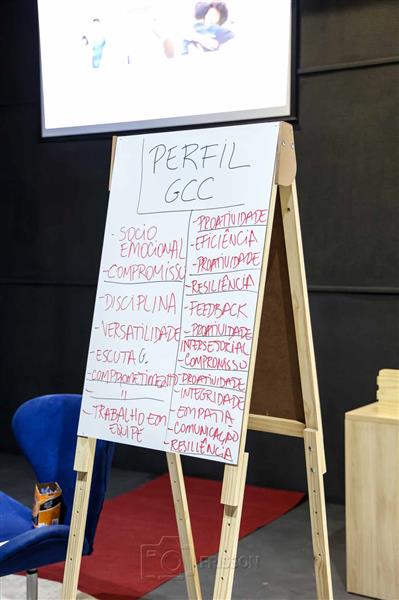 PERFIL
GCC
- SOCIO
EMOCIONAL
- COMPROMISSO
- DISCIPLINA
- VERSATILIDADE
- ESCUTA G.
- COMPROMETIMENTO
- "
- TRABALHO EM
EQUIPE
- PROATIVIDADE
- EFICIÊNCIA
- PROATIVIDADE
- RESILIÊNCIA
- FEEDBACK
- PROATIVIDADE
INTERSETORIAL
- COMPROMISSO
- PROATIVIDADE
- INTEGRIDADE
- EMPATIA
- COMUNICAÇÃO
- RESILIÊNCIA
FRISSON